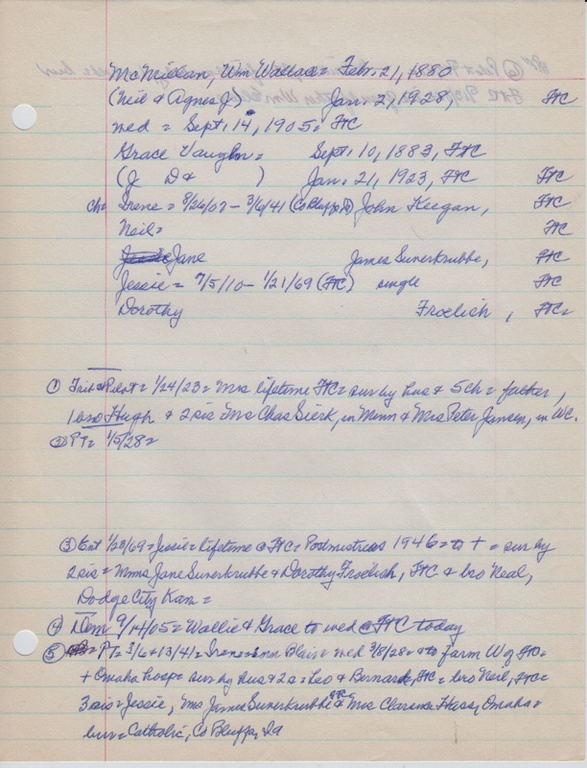 McMillan, Wm Wallace = Febr. 21, 1880
(Neil & Agnes J) Jan. 2, 1928, FtC
wed = Sept. 14, 1905 = FtC
Grace Vaughn = Sept. 10, 1883, FtC
(J D & ) Jan. 21, 1923, FtC FtC
ch = Irene = 8/26/07 - 3/6/41 (Co Bluffs Ia) John Keegan, FtC
Neil = FtC
Jane James Sunerkrubbe, FtC
Jessie = 7/5/10 - 1/21/69 (FtC) single FtC
Dorothy Froelish, FtC =
① Trib & Pilot = 1/24/23 = Mrs lifetime FtC = sur by hus & 5 ch = father,
1 bro Hugh & 2 sis Mrs Chas Sierk, in Minn & Mrs Peter Jansen, in WC.
② PT = 1/5/28 =
③ Ent 1/28/69 = Jessie = lifetime @ FtC = Postmistress 1946 = to + = sur by
2 sis = Mmes Jane Sunerkrubbe & Dorothy Froelish, FtC & bro Neal,
Dodge City Kan =
④ Dem 9/14/05 = Wallie & Grace to wed @ FtC today
⑤ PT = 3/6 + 13/41 = Irene = in Blair = wed 3/8/28 = to farm W of FtC =
+ Omaha hosp = sur by hus & 2 s = Leo & Bernard, FtC = bro Neil, FtC =
3 sis = Jessie, Mrs James Sunerkrubbe FtC & Mrs Clarence Hass, Omaha =
bur = Catholic, Co Bluffs, Ia